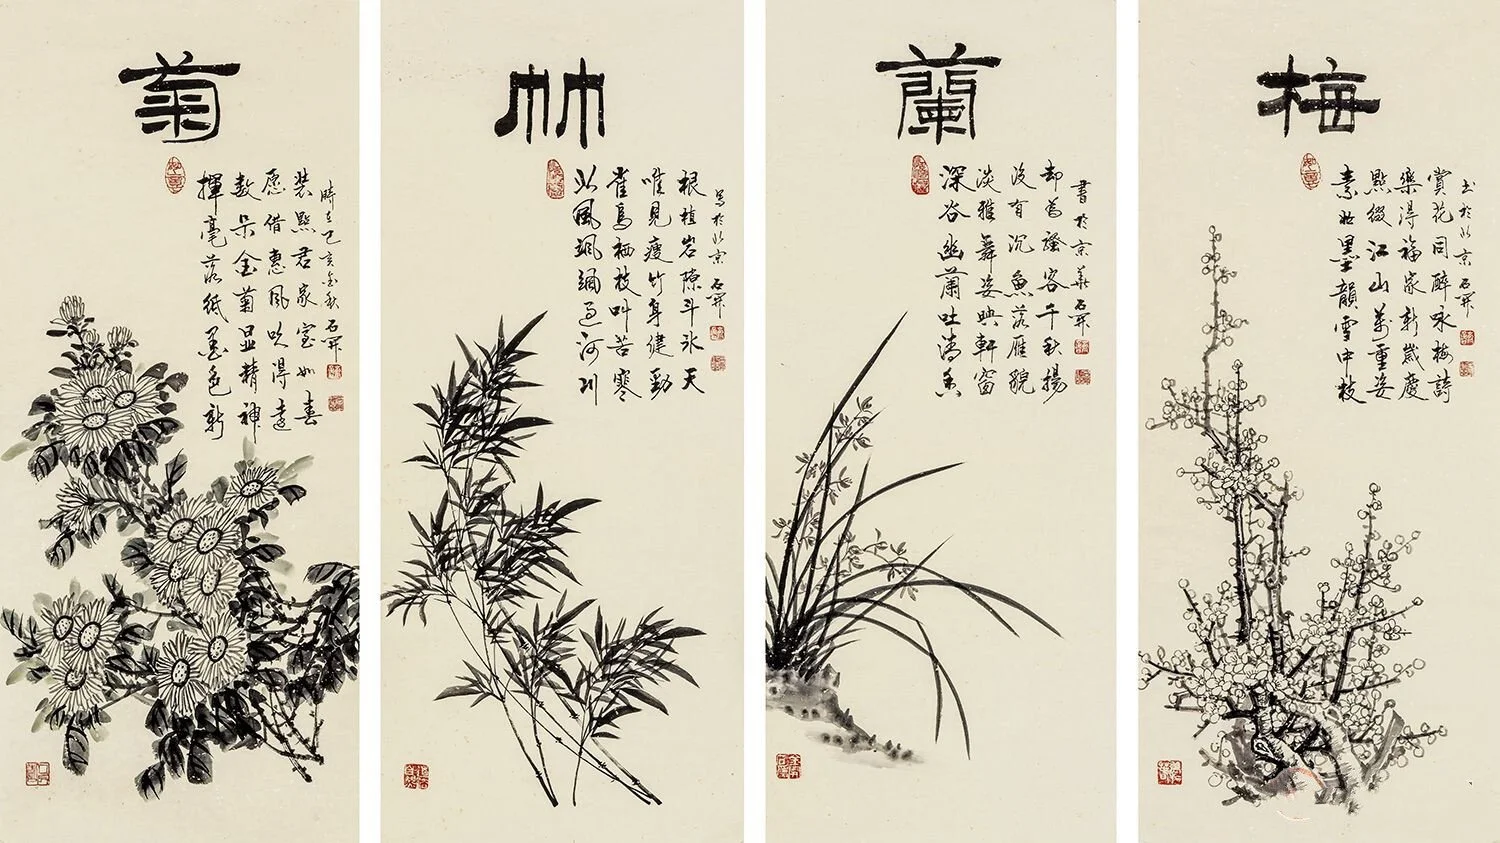 梅
素妝墨韻雪中枝
點綴江山萬重姿
樂得福家新歲慶
賞花同醉咏梅詩
书於北京 石開
蘭
深谷幽蘭吐清香
淡雅舞姿映軒窗
没有沉魚落雁貌
却為騷客千秋揚
書於京華 石開
竹
北風颯颯過河川
雀鳥栖枝叫苦寒
唯見瘦竹身健勁
根植岩隙斗冰天
写於北京 石開
菊
揮毫落紙墨色新
数朵金菊显精神
愿借惠風以得遠
裝點君家室如春
時在己亥金秋 石開